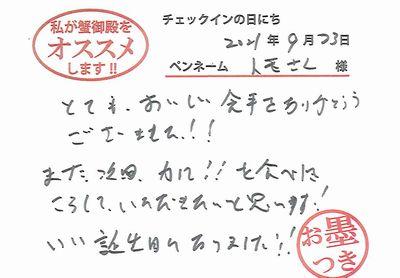 私が蟹御殿を
オススメ
します!!
チェックインの日にち
2021年9月23日
ペンネーム トモさん 様
とても、おいしい
ありがとう
ございました!!
また、次回、カに!!を食べに
と思います!
いい誕生日になりました!!
お墨
つき